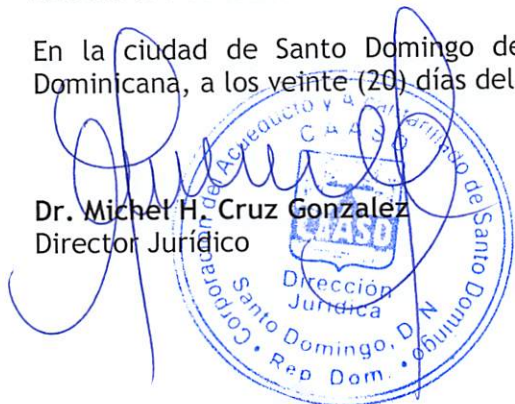 En la ciudad de Santo Domingo de
Dominicana, a los veinte (20) días del
Dr. Michel H. Cruz Gonzalez
Director Jurídico
Corporación del Acueducto y Alcantarillado de Santo Domingo
CAASD
CAASD
Dirección
Jurídica
Santo Domingo, D N
• Rep Dom. •